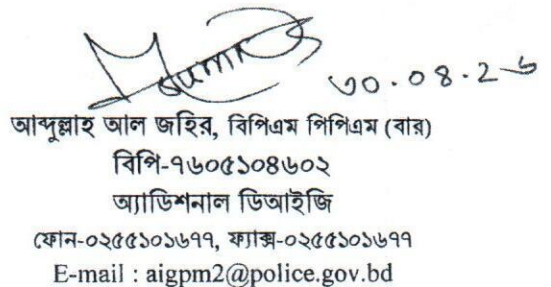 ৩০.০৪.২৬
আব্দুল্লাহ আল জহির, বিপিএম পিপিএম (বার)
বিপি-৭৬০৫১০৪৬০২
অ্যাডিশনাল ডিআইজি
ফোন-০২৫৫১০১৬৭৭, ফ্যাক্স-০২৫৫১০১৬৭৭
E-mail : aigpm2@police.gov.bd